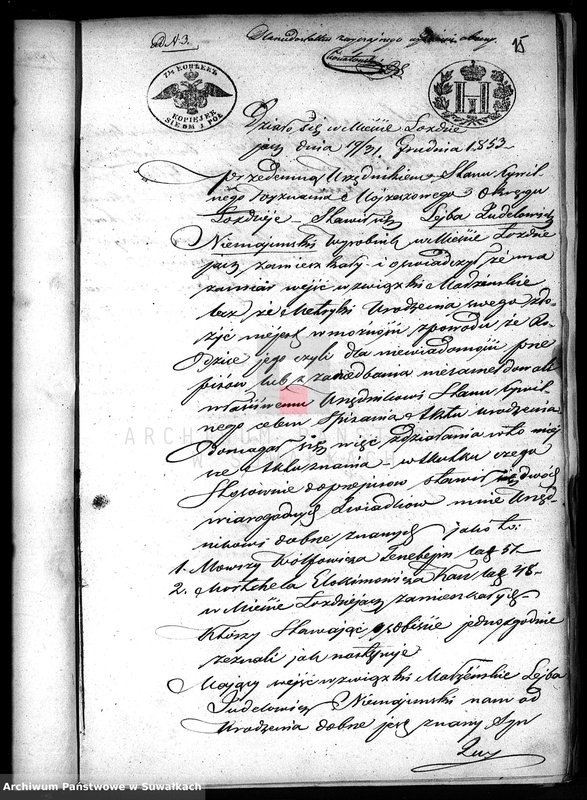 ad N 3.
15
7½ KOPIEJEK
KOPIEJEK
Działo się w Mieście Łozdzie
jach dnia 19/31 Grudnia 1853
przedemną Urzędnikiem Stanu Cywil-
nego Wyznania Mojżeszowego Okręgu
Łozdzieje - Stawił się Lejba Judelowicz
Niemajuński Wyrobnik w Mieście Łozdzie
jach zamieszkały i oświadczył że ma
zamiar wejść w związki Małżeńskie
lecz że Metryki Urodzenia swego zło-
żyć niejest w możności z powodu że Ro-
dzice jego czyli dla niewiadomości prze
pisów lub z zaniedbania niezameldowali
właściwemu Urzędnikowi Stanu Cywil-
nego celem spisania Aktu urodzenia
Domagał się więc zdziałania w to miej
sce Aktu znania - w skutku czego
Stosownie do przepisów stawił dwóch
wiarogodnych Świadków mnie Urzęd-
nikowi dobrze znanych jako to:
1. Mowszy Wolfowicza lat 57
2. Mortchela lat 48
w Mieście Łozdziejach zamieszkałych
Którzy Stawając osobiście jednozgodnie
zeznali jak następuje
Mający wejść w związki Małżeńskie Lejba
Judelowicz Niemajuński nam od
Urodzenia dobrze jest znany Syn
ARCHIWUM PAŃSTWOWE
W SUWAŁKACH
Archiwum Państwowe w Suwałkach